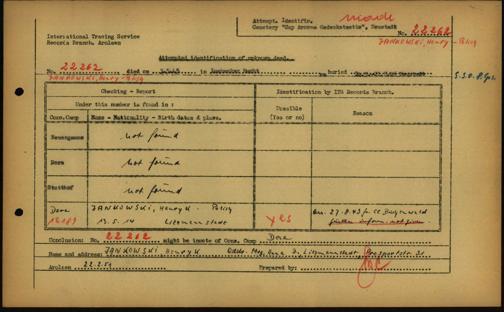 Attempt. Identific. made
Cemetery "Cap Arcona Gedenkstaette", Neustadt
No. 22262
JANKOWSKI, Henry - Polish
International Tracing Service
Records Branch, Arolsen
Attempted identification of unknown dead.
No. 22262 died on 3.5.45 in buried
JANKOWSKI, Henry - Polish
Checking - Report
Identification by ITS Records Branch.
Under this number is found in:
Possible (Yes or no)
Reason
Conc.Camp Name - Nationality - Birth dates & place.
Neuengamme not found
Dora not found
Stutthof not found
Dora JANKOWSKI, Henryk - Polish
13.5.14 Litzmannstadt
YES
arr. 27.8.43 fr. CC Buchenwald
further inform. not given
Conclusion: No. 22262 might be inmate of Conc. Camp Dora
Name and address: JANKOWSKI Henryk
Arolsen 22.2.54 Prepared by: